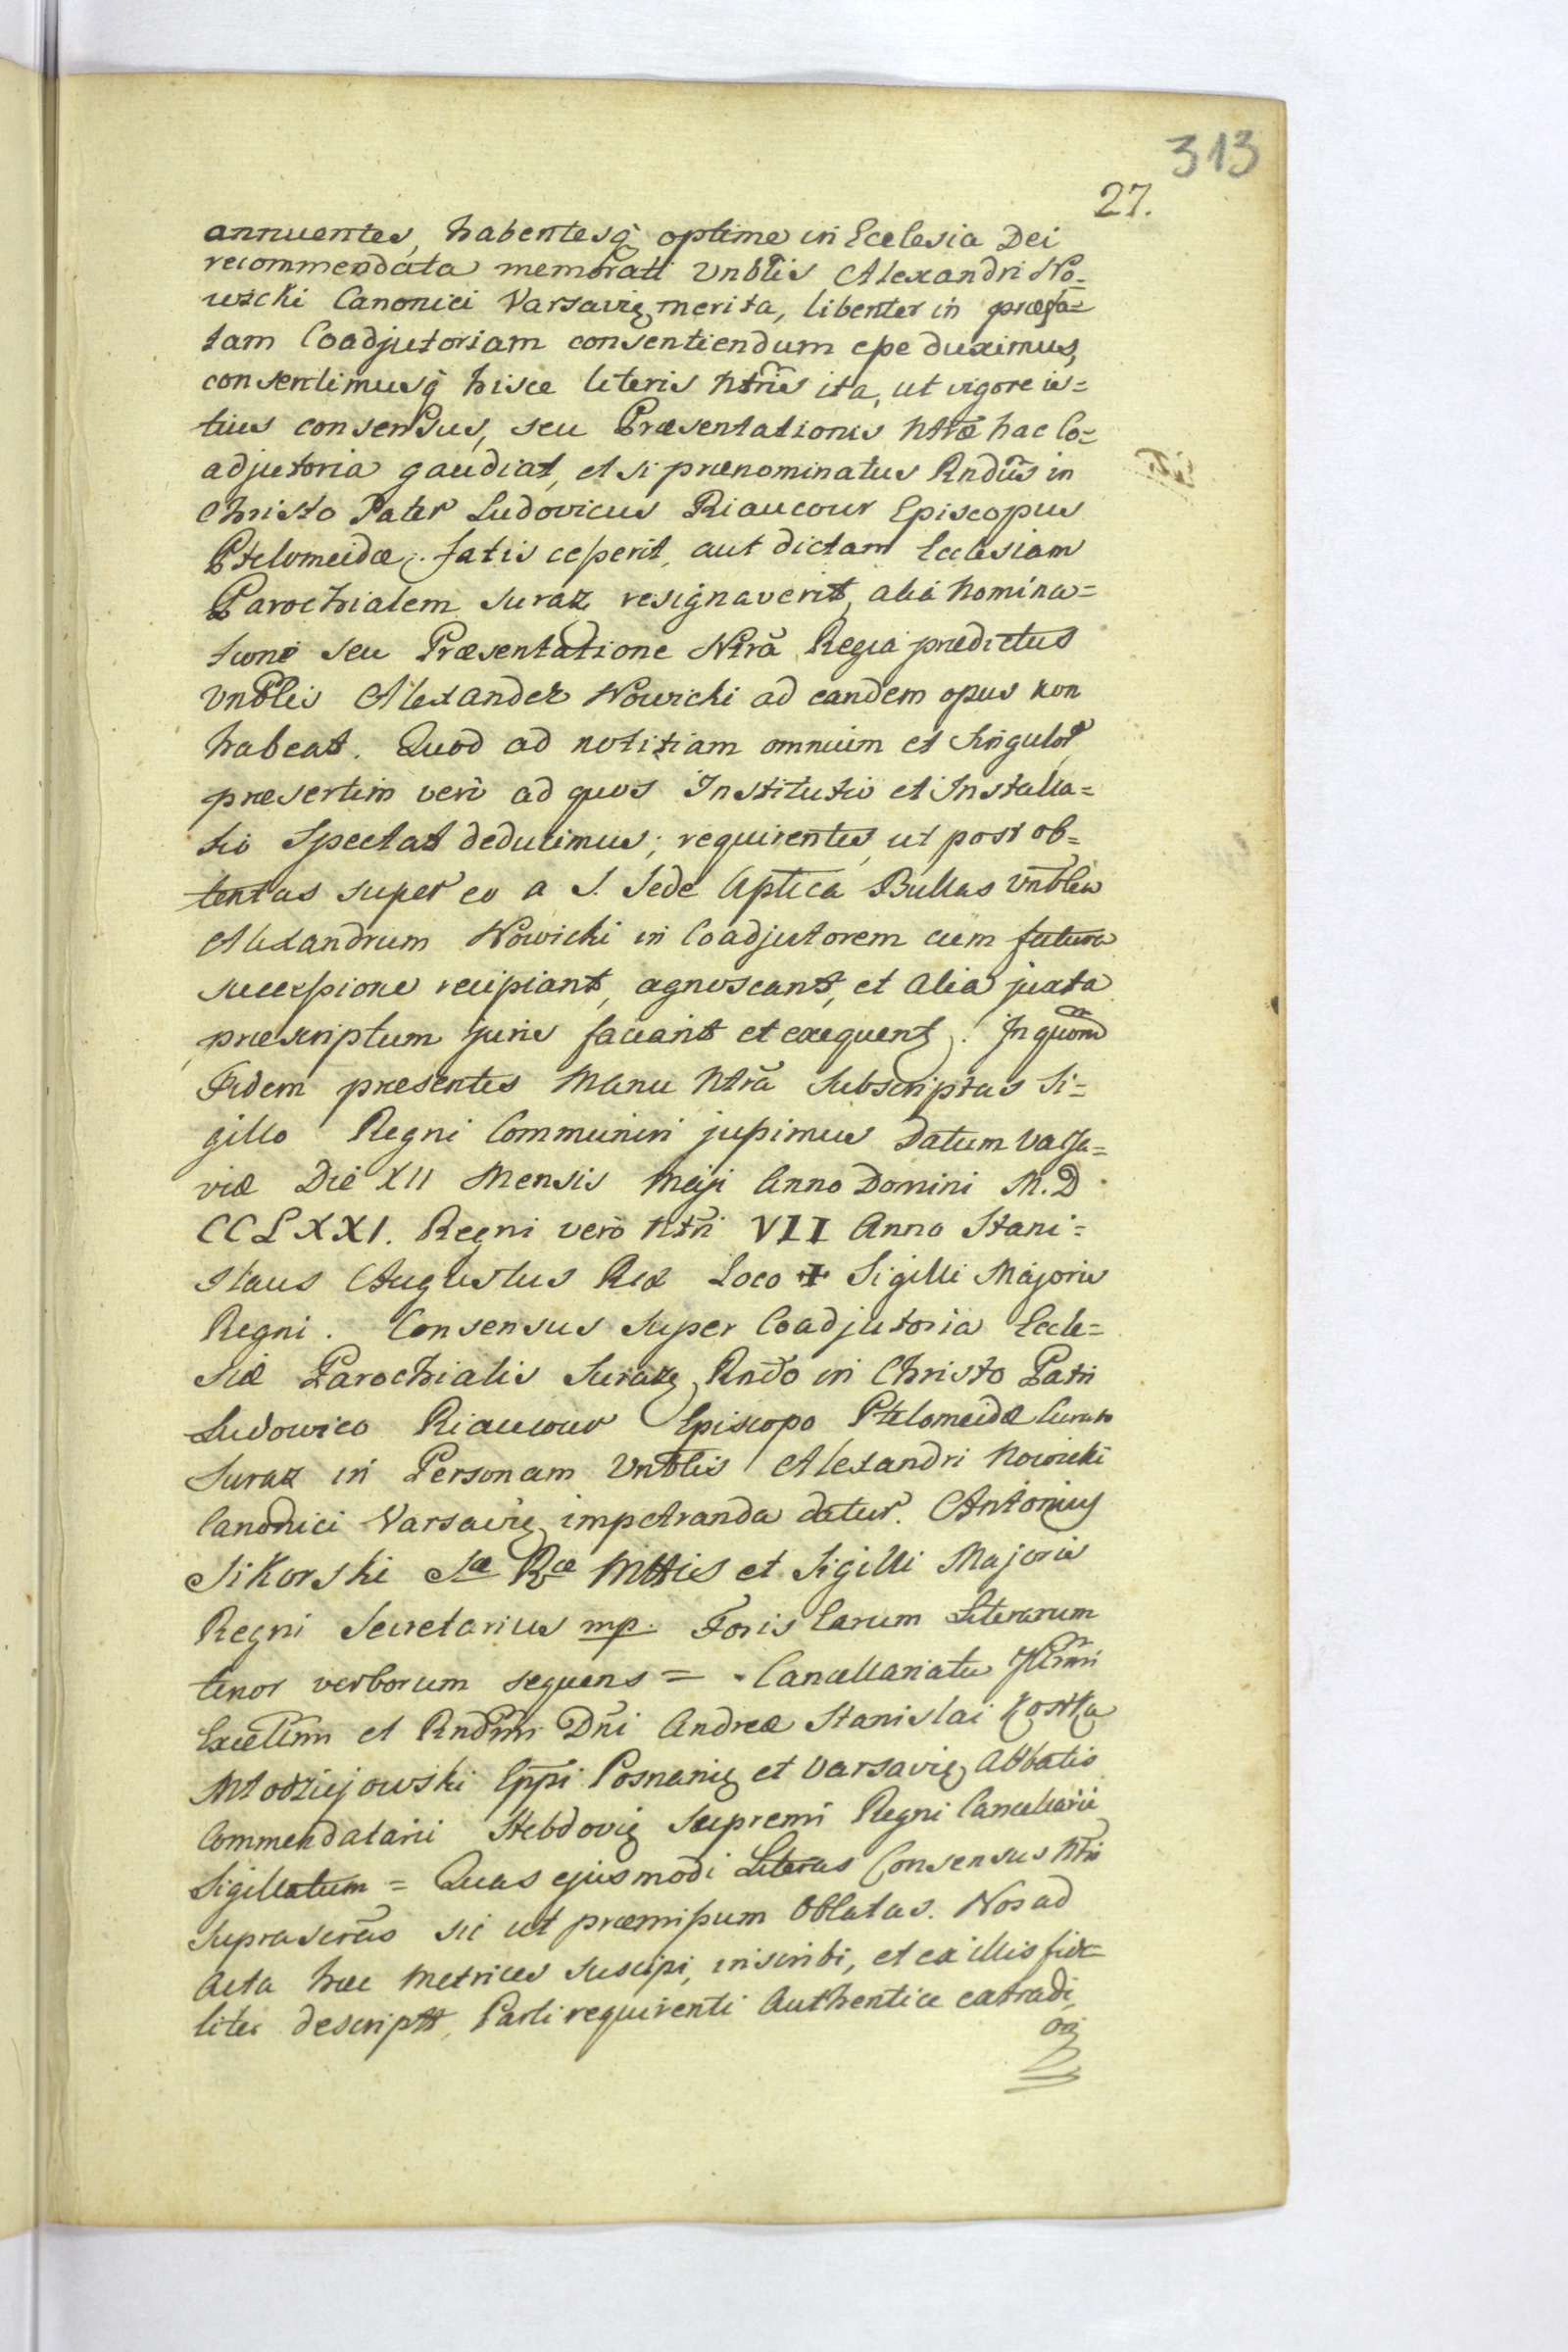 313
27.
annuentes, habentesq̃ optime in Ecclesia Dei
recommendata memorati Vnblis Alexandri No=
wicki Canonici Varsavię merita, libenter in præfa=
tam Coadjutoriam consentiendum eße duximus,
consentimusq̃ hisce literis Ntris ita, ut vigore is=
tius consensus, seu Præsentationis Ntræ hac Co=
adjutoria gaudiat, et si prænominatus Rndus in
Christo Pater Ludovicus Riaucour Episcopus
Ptelomeidæ fatis ceßerit, aut dictam Ecclesiam
Parochialem Suraz resignaverit, aliâ Nomina=
tione seu Præsentatione Ntrâ Regia prædictus
Vnblis Alexander Nowicki ad eandem opus non
habeat. Quod ad notitiam omnium et Singulor
præsertim verò ad quos Institutio et Installa=
tio Spectat deducimus; requirentes, ut post ob=
tentas super eo a S. Sede Aptica Bullas Vnblem
Alexandrum Nowicki in Coadjutorem cum futura
succeßione recipiant, agnoscant, et alia juxta
præscriptum juris faciant et exequent. In quorum
Fidem præsentes Manu Ntrâ Subscriptas Si=
gillo Regni Communiri jußimus Datum Varsa=
viæ Die XII Mensis Maji Anno Domini M.D
CCLXXI. Regni verò Ntri VII Anno Stani=
slaus Augustus Rex Loco ✝ Sigilli Majoris
Regni. Consensus super Coadjutoria Eccle=
siæ Parochialis Suraz, Rndo in Christo Patri
Ludowico Riaucour Episcopo Ptelomeidæ Curato
Suraz in Personam Vnblis Alexandri Nowicki
Canonici Varsavię impetranda datur. Antonius
Sikorski Sæ Ræ Mttis et Sigilli Majoris
Regni Secretarius mp. Foris Earum Literarum
tenor verborum sequens = Cancellariatu Illmi
Excellmi et Rndmi Dni Andreæ Stanislai Kostka
Młodziejowski Eppi Posnanię et Varsavię, Abbatis
Commendatarii Hebdovię Supremi Regni Cancellarii
Sigillatum = Quas ejusmodi Literas Consensus Ntri
suprascrtas sic ut præmißum Oblatas. Nos ad
Acta hæc Metrices suscipi, inscribi, et ex illis fide=
liter descriptt, Parti requirenti Authentice extradi,